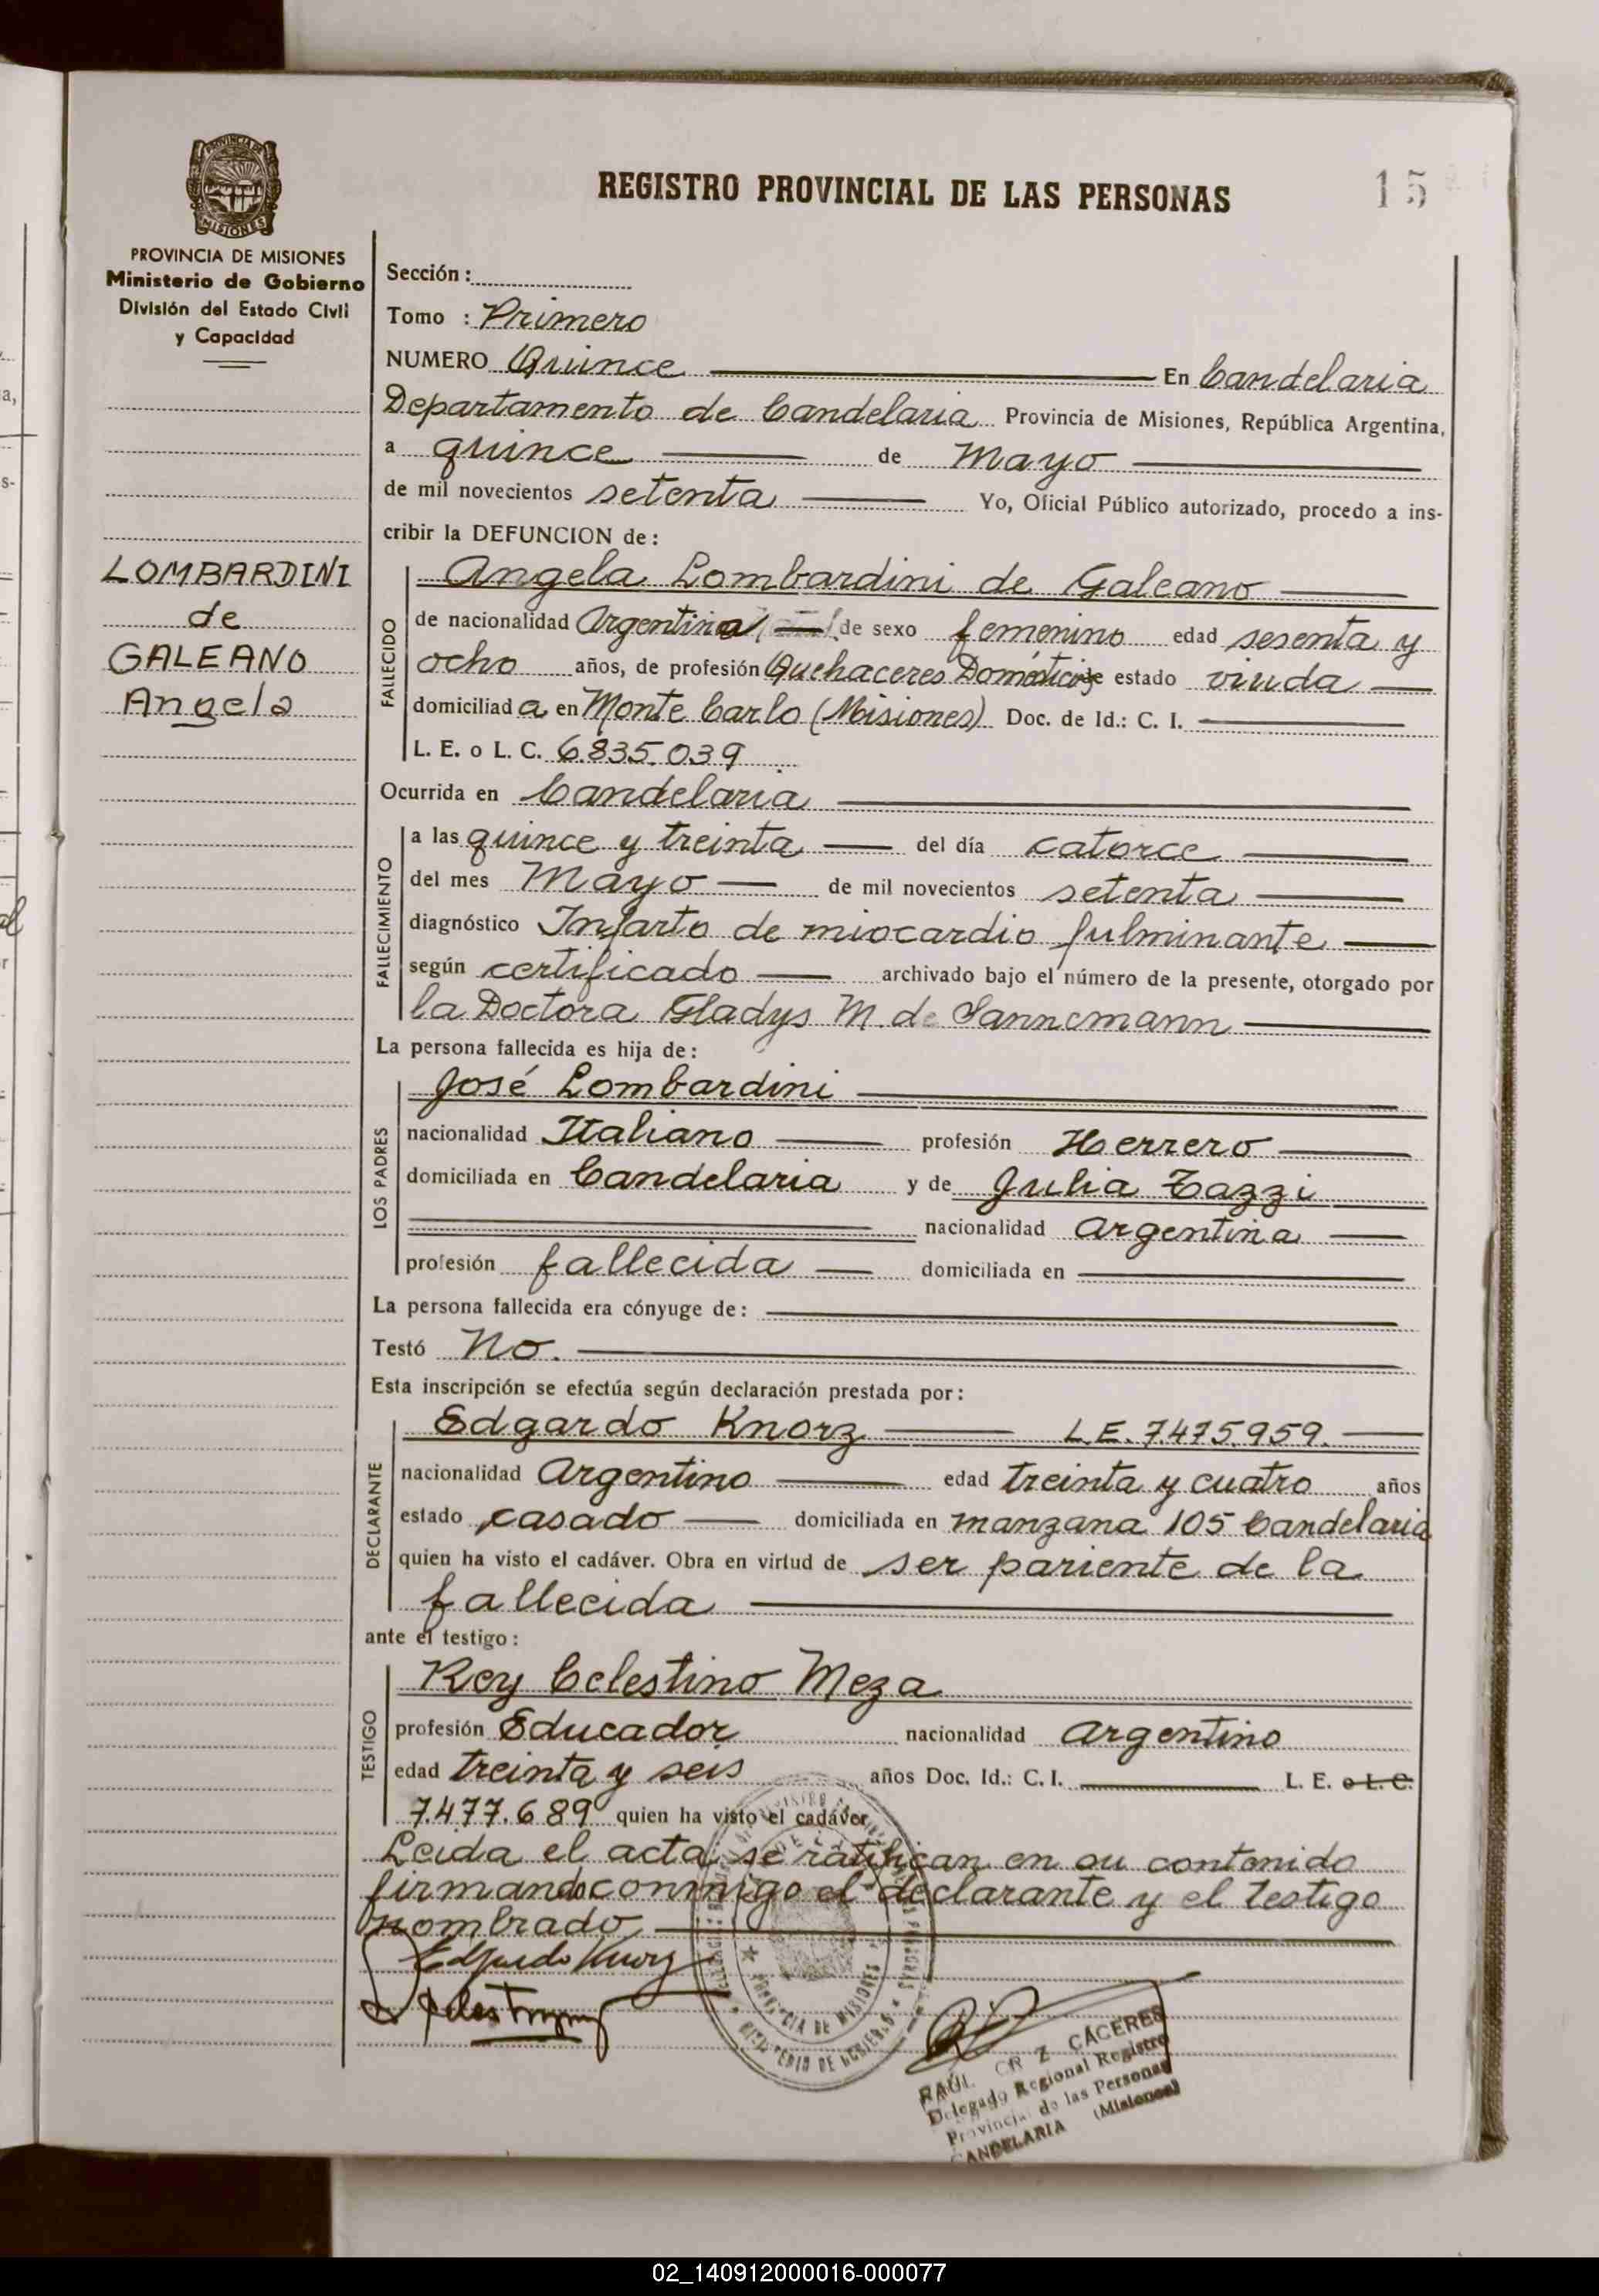 REGISTRO PROVINCIAL DE LAS PERSONAS
15
PROVINCIA DE MISIONES
PROVINCIA DE MISIONES
Ministerio de Gobierno
División del Estado Civil
y Capacidad
Sección:
Tomo : Primero
NUMERO Quince En Candelaria
Departamento de Candelaria Provincia de Misiones, República Argentina,
a quince de Mayo
de mil novecientos setenta Yo, Oficial Público autorizado, procedo a ins-
cribir la DEFUNCION de:
LOMBARDINI
de
GALEANO
Angela
FALLECIDO
Angela Lombardini de Galeano
de nacionalidad Argentina de sexo femenino edad sesenta y
ocho años, de profesión Quehaceres Domésticos de estado viuda
domiciliada en Monte Carlo (Misiones) Doc. de Id.: C. I.
L. E. o L. C. 6.835.039
Ocurrida en Candelaria
FALLECIMIENTO
a las quince y treinta del día catorce
del mes Mayo de mil novecientos setenta
diagnóstico Infarto de miocardio fulminante
según certificado archivado bajo el número de la presente, otorgado por
la Doctora Gladys M. de Sannemann
La persona fallecida es hija de:
LOS PADRES
José Lombardini
nacionalidad Italiano profesión Herrero
domiciliada en Candelaria y de Julia Tazzi
nacionalidad argentina
profesión fallecida domiciliada en
La persona fallecida era cónyuge de:
Testó No.
Esta inscripción se efectúa según declaración prestada por:
DECLARANTE
Edgardo Knorz L.E. 7.475.959.
nacionalidad Argentino edad treinta y cuatro años
estado casado domiciliada en manzana 105 Candelaria
quien ha visto el cadáver. Obra en virtud de ser pariente de la
fallecida
ante el testigo:
TESTIGO
Rey Celestino Meza
profesión Educador nacionalidad argentino
edad treinta y seis años Doc. Id.: C. I. L. E. o L. C.
7.477.689 quien ha visto el cadáver
Leida el acta, se ratifican en su contenido
firmando conmigo el declarante y el testigo
nombrado
Edgardo Knorz
PROVINCIA DE MISIONES
MINISTERIO DE GOBIERNO
RAÚL CRUZ CÁCERES
Delegado Regional Registro
Provincial de las Personas
CANDELARIA (Misiones)
02_140912000016-000077